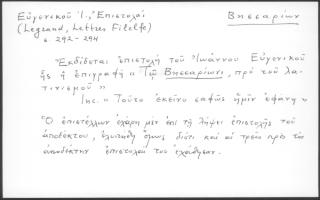 Εὐγενικοῦ Ἰ., Ἐπιστολαί
Βησσαρίων
(Legrand, Lettres Filelfe)
σ. 292-294
Ἐκδίδεται ἐπιστολὴ τοῦ Ἰωάννου Εὐγενικοῦ
ἧς ἡ ἐπιγραφὴ "Τῷ Βησσαρίωνι, πρὸ τοῦ λα-
τινισμοῦ"
Inc. "Τοῦτο ἐκεῖνο σαφῶς ἡμῖν ἐφάνη"
Ὁ ἐπιστέλλων ἐχάρη μὲν ἐπὶ τῇ λήψει ἐπιστολῆς τοῦ
ἀποδέκτου, ἐλυπήθη ὅμως διότι καὶ αἱ τρεῖς πρὸς τὸν
ἀποδέκτην ἐπιστολαί του ἐχάθησαν.